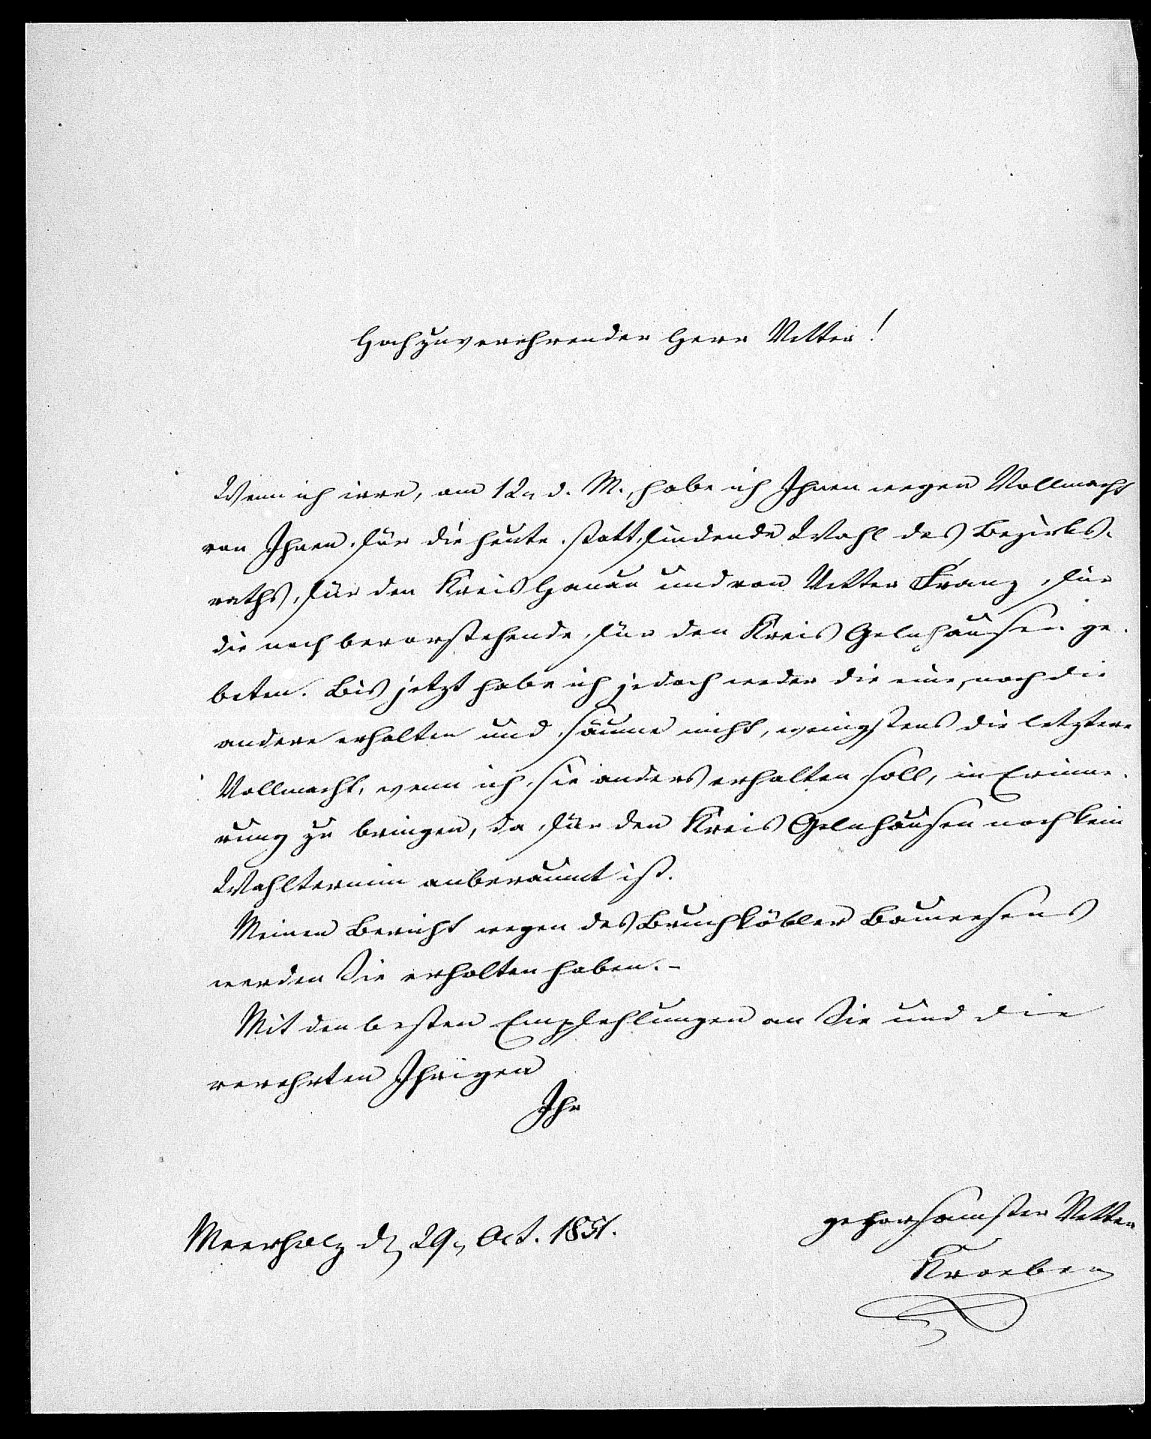 Hochzuverehrender Herr Vetter!
Wenn ich irre, am 12n d. M., habe ich Ihnen wegen Vollmacht
von Ihnen für die heute stattfindende Wahl des Bezirks-
raths, für den Kreis Hanau und von Vetter Franz, für
die noch bevorstehende, für den Kreis Gelnhausen ge-
beten. Bis jetzt habe ich jedoch weder die eine, noch die
andere erhalten und säume nicht, wenigstens die letztere
Vollmacht, wenn ich sie anders erhalten soll, in Erinne-
rung zu bringen, da für den Kreis Gelnhausen noch kein
Wahltermin anberaumt ist.
Meinen Bericht wegen des Bruchköbler
werden Sie erhalten haben. –
Mit den besten Empfehlungen an Sie und die
verehrten Ihrigen
Ihr
gehorsamster Vetter
Meerholz d. 29n Oct. 1851.
Kroeber